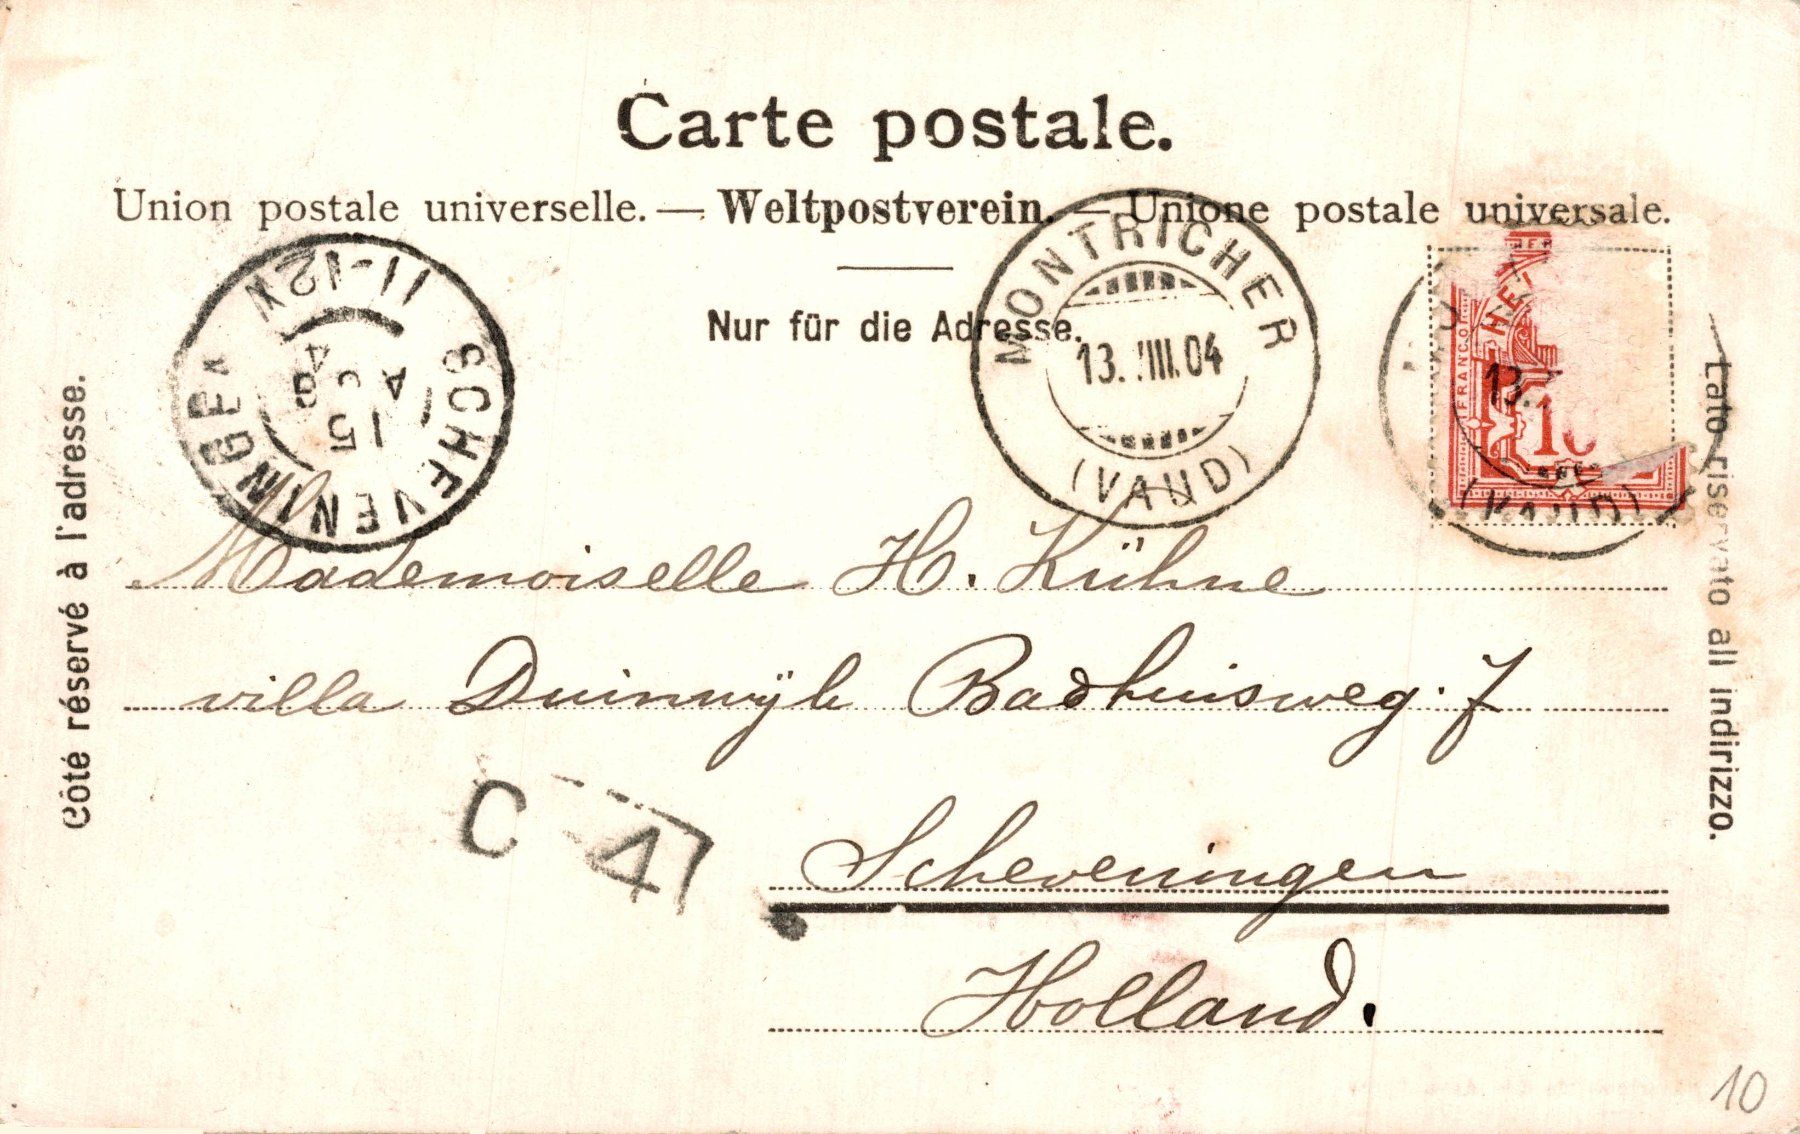 Carte postale.
Union postale universelle. — Weltpostverein. — Unione postale universale.
Nur für die Adresse.
Côté réservé à l'adresse.
Lato riservato all indirizzo.
SCHEVENINGEN
11-12V
15
MONTRICHER
13. VIII. 04
(VAUD)
FRANCO
HE
10
13.
(VAUD)
Mademoiselle H. Kühne
villa Duinwÿk Badhuisweg. 7
C 4
Scheveningen
Holland.
10